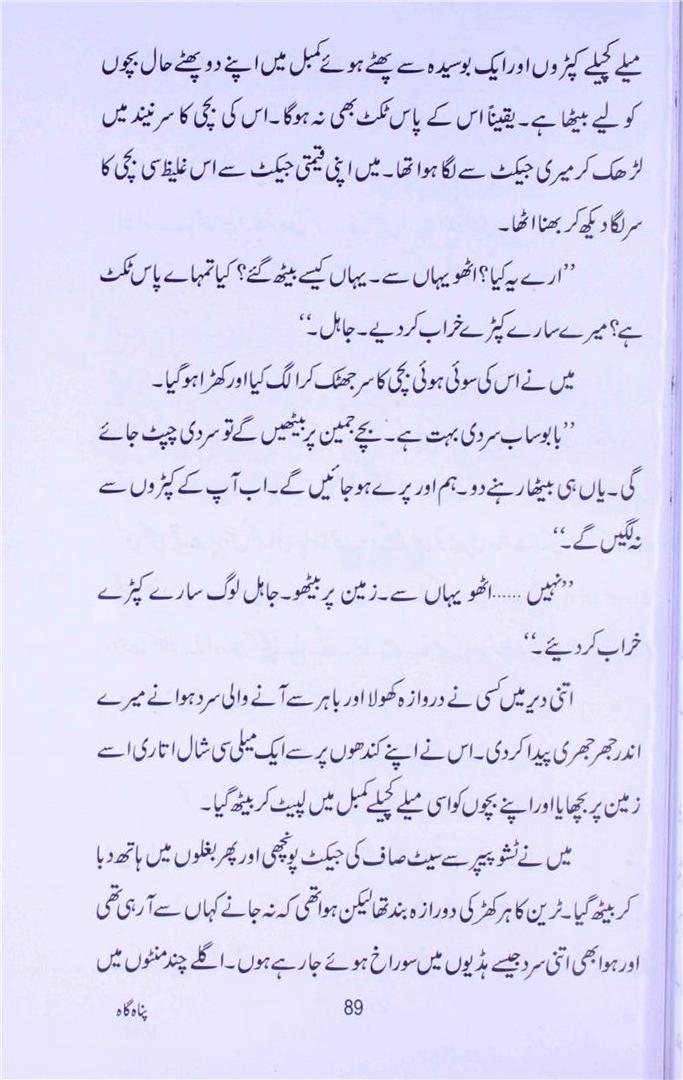 میلے کچیلے کپڑوں اور ایک بوسیدہ سے پھٹے ہوئے کمبل میں اپنے دو پھٹے حال بچوں
کو لیے بیٹھا ہے۔ یقیناً اس کے پاس ٹکٹ بھی نہ ہوگا۔ اس کی بچی کا سر نیند میں
لڑھک کر میری جیکٹ سے لگا ہوا تھا۔ میں اپنی قیمتی جیکٹ سے اس غلیظ سی بچی کا
سر لگا دیکھ کر بھنا اٹھا۔
’’ارے یہ کیا؟ اٹھو یہاں سے۔ یہاں کیسے بیٹھ گئے؟ کیا تمہاے پاس ٹکٹ
ہے؟ میرے سارے کپڑے خراب کر دیے۔ جاہل۔‘‘
میں نے اس کی سوئی ہوئی بچی کا سر جھٹک کر الگ کیا اور کھڑا ہو گیا۔
’’بابو ساب سردی بہت ہے۔ بچے جمین پر بیٹھیں گے تو سردی چپٹ جائے
گی۔ یاں ہی بیٹھا رہنے دو۔ ہم اور پرے ہو جائیں گے۔ اب آپ کے کپڑوں سے
نہ لگیں گے۔‘‘
’’نہیں ...... اٹھو یہاں سے۔ زمین پر بیٹھو۔ جاہل لوگ سارے کپڑے
خراب کر دیئے۔‘‘
اتنی دیر میں کسی نے دروازہ کھولا اور باہر سے آنے والی سرد ہوا نے میرے
اندر جھرجھری پیدا کر دی۔ اس نے اپنے کندھوں پر سے ایک میلی سی شال اتاری اسے
زمین پر بچھایا اور اپنے بچوں کو اسی میلے کچیلے کمبل میں لپیٹ کر بیٹھ گیا۔
میں نے ٹشو پیپر سے سیٹ صاف کی جیکٹ پونچھی اور پھر بغلوں میں ہاتھ دبا
کر بیٹھ گیا۔ ٹرین کا ہر کھڑکی دورازہ بند تھا لیکن ہوا تھی کہ نہ جانے کہاں سے آ رہی تھی
اور ہوا بھی اتنی سرد جیسے ہڈیوں میں سوراخ ہوئے جا رہے ہوں۔ اگلے چند منٹوں میں
89
پناہ گاہ